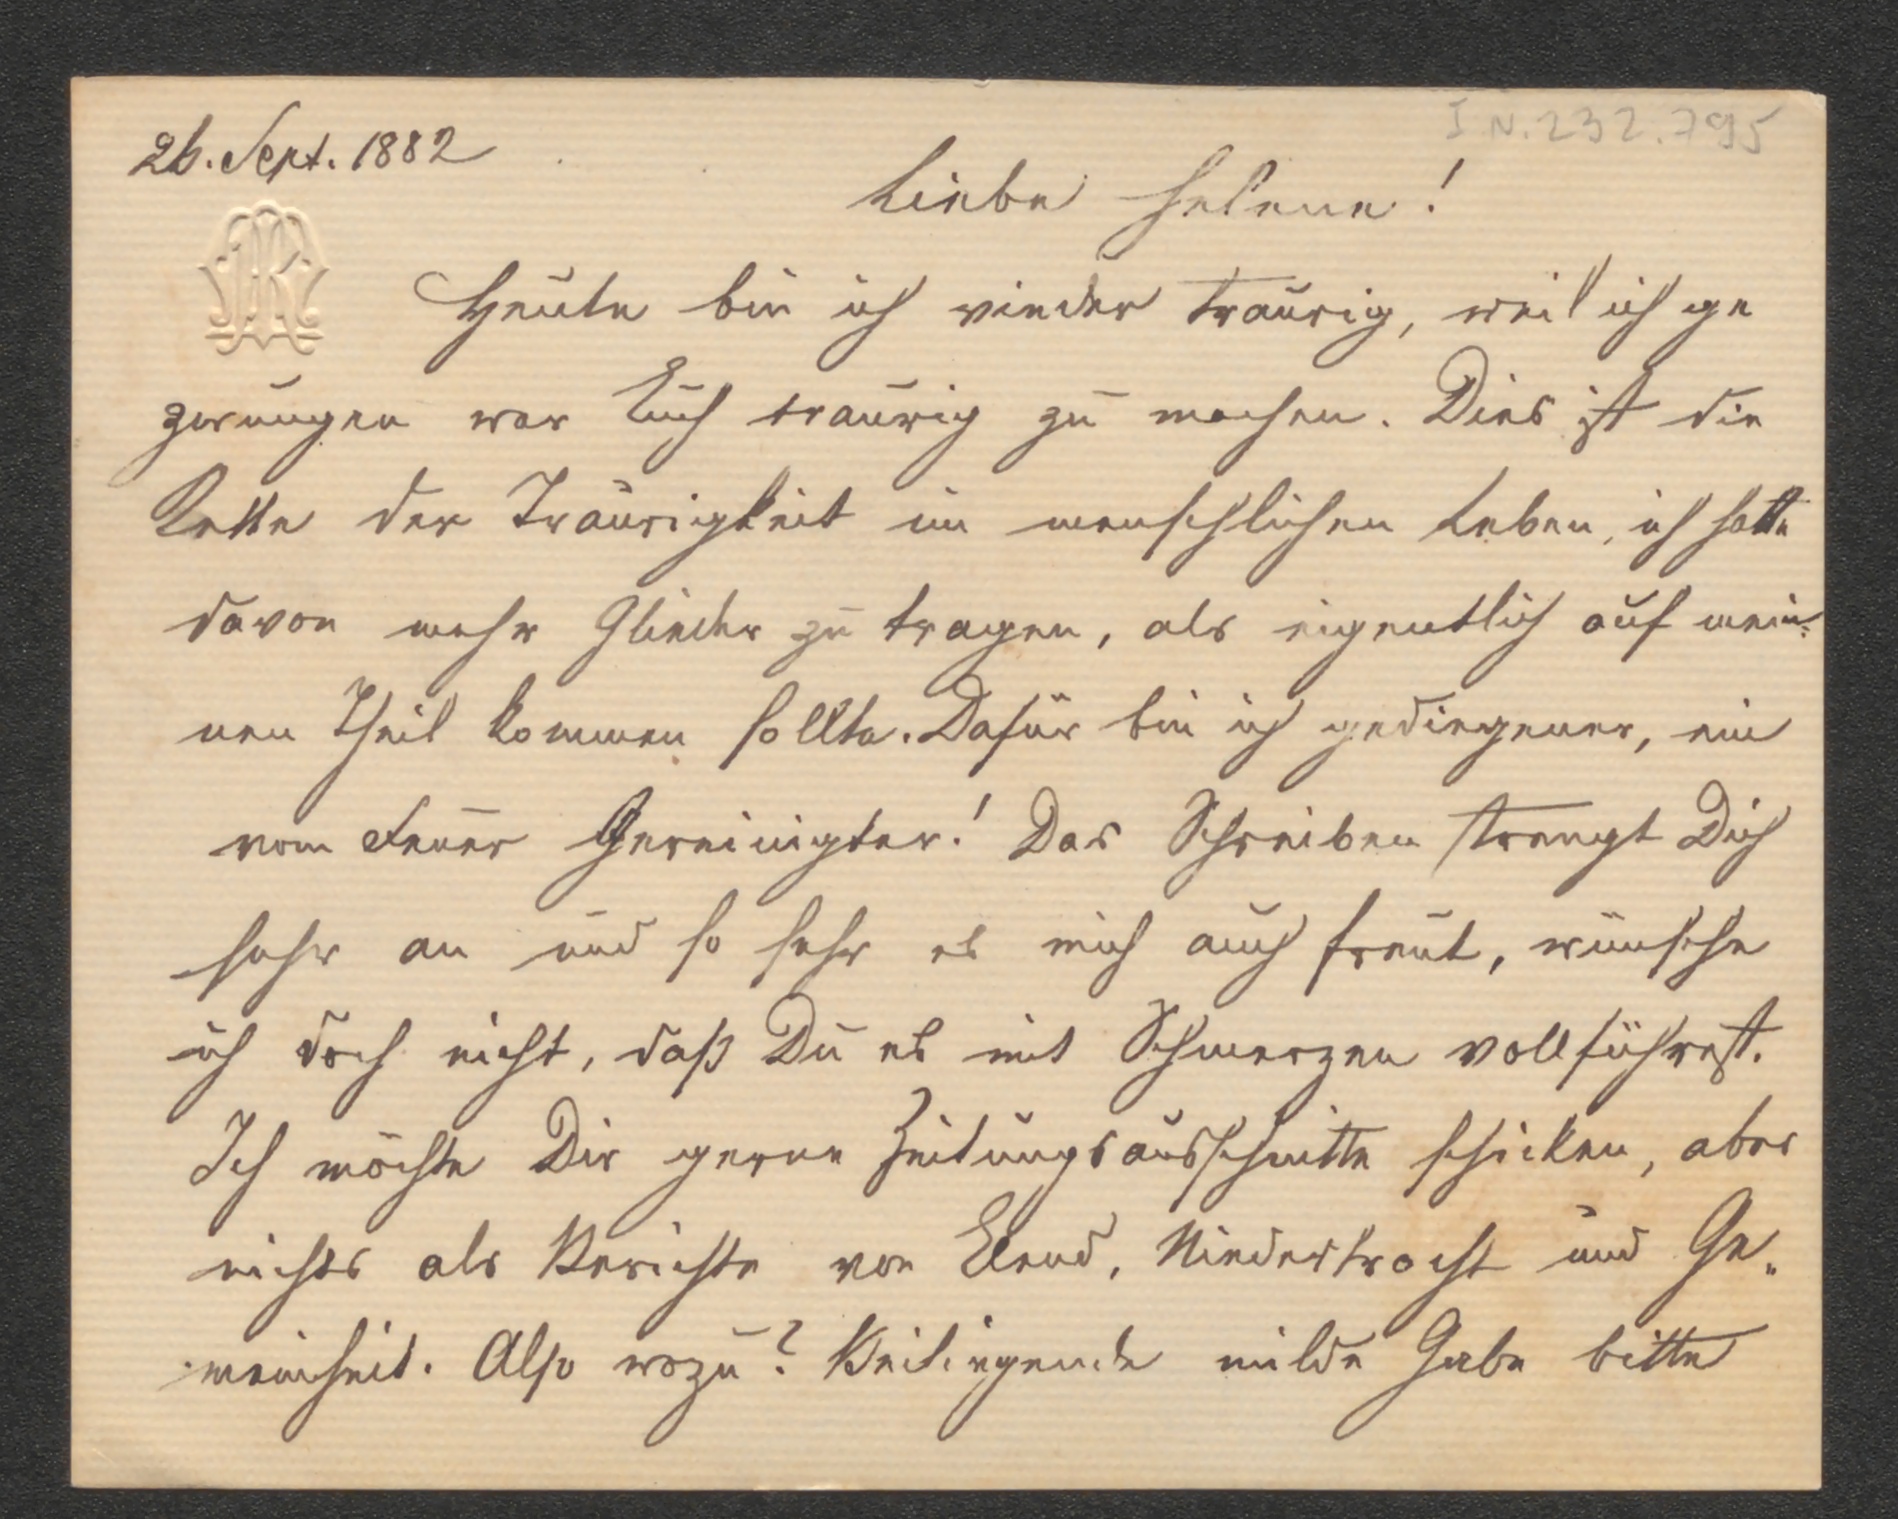 I N. 232.795
26. Sept. 1882
Liebe Helene!
Heute bin ich wieder traurig, weil ich ge
zwungen war Euch traurig zu machen. Dies ist die
Kette der Traurigkeit im menschlichen Leben, ich hatte
davon mehr Glieder zu tragen, als eigentlich auf mei-
nen Theil kommen sollte. Dafür bin ich gediegener, ein
vom Feuer Gereinigter! Das Schreiben strengt Dich
sehr an und so sehr es mich auch freut, wünsche
ich doch nicht, daß Du es mit Schmerzen vollführest.
Ich möchte Dir gerne Zeitungsausschnitte schicken, aber
nichts als Berichte von Elend, Niedertracht und Ge-
meinheit. Also wozu? Beiliegende milde Gabe bitte